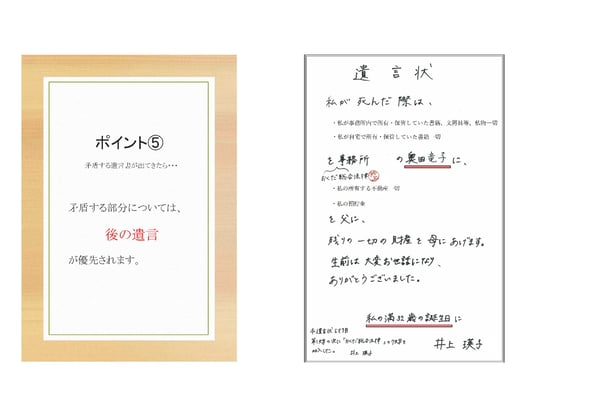 ポイント⑤
矛盾する遺言書が出てきたら・・・
矛盾する部分については、
後の遺言
が優先されます。
遺言状
私が死んだ際は、
・私が事務所内で所有・保管していた書籍、文房具等、私物一切
・私が自宅で所有・保管していた書籍一切
を事務所の奥田竜子に、
おくだ総合法律
・私の所有する不動産一切
・私の預貯金
を父に、
残りの一切の財産を母にあげます。
生前は大変お世話になり、
ありがとうございました。
私の満32歳の誕生日に
井上瑛子
本遺言状
井上瑛子